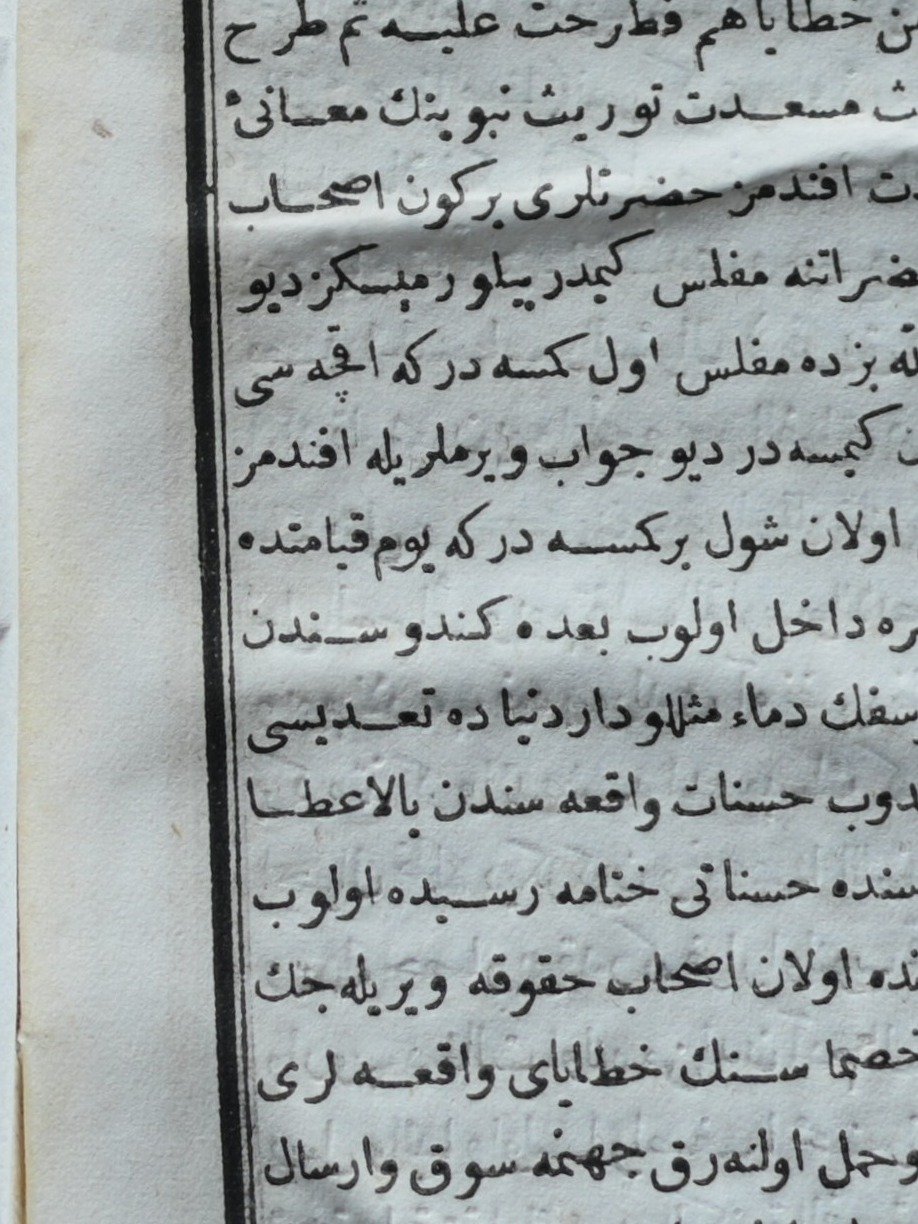 من خطاياهم فطرحت عليه ثم طرح
مسعدت توريث نبوينك معانئ
افندمز حضرتلرى بركون اصحاب
مفلس كيمدر بيلورميسكز ديو
بزده مفلس اول كمسه دركه اقچه سى
كيمسه در ديو جواب ويرملريله افندمز
اولان شول بركمسه دركه يوم قيامتده
داخل اولوب بعده كندوسندن
سفك دماء مثللو دار دنياده تعديسى
حسنات واقعه سندن بالاعطا
حسناتى ختامه رسيده اولوب
اولان اصحاب حقوقه ويريله جك
خصماسنك خطاياى واقعه لرى
وحمل اولنه رق جهنمه سوق وارسال